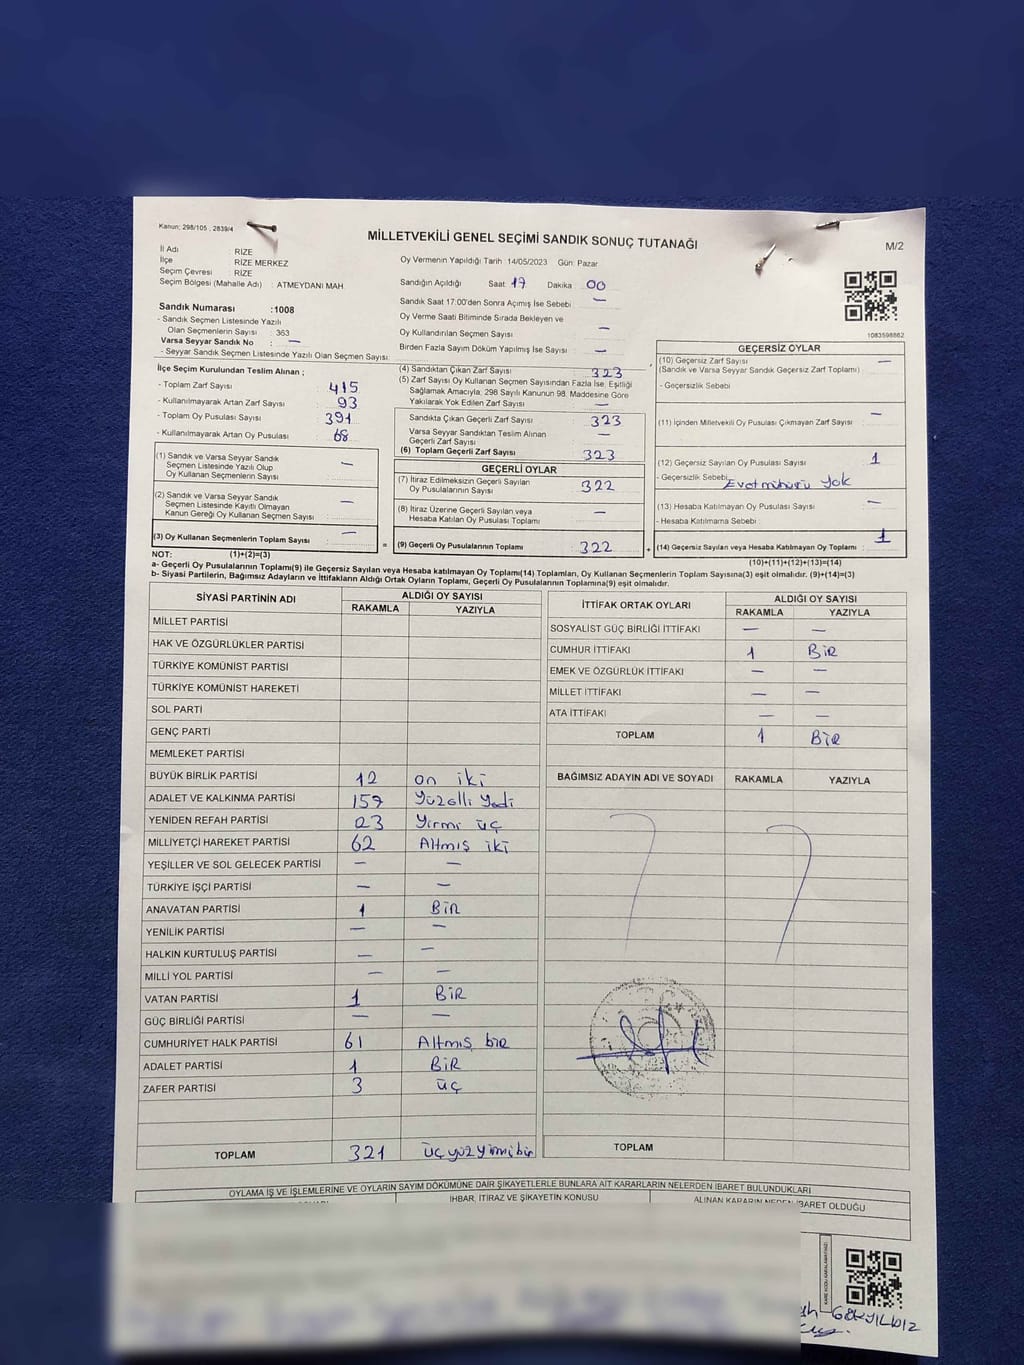 Kanun; 298/105 , 2839/4
MİLLETVEKİLİ GENEL SEÇİMİ SANDIK SONUÇ TUTANAĞI
M/2
İl Adı : RİZE
İlçe : RİZE MERKEZ
Seçim Çevresi : RİZE
Seçim Bölgesi (Mahalle Adı) : ATMEYDANI MAH.
Oy Vermenin Yapıldığı Tarih : 14/05/2023 Gün: Pazar
Sandığın Açıldığı Saat 17 Dakika 00
Sandık Saat 17:00'den Sonra Açımış İse Sebebi : —
Oy Verme Saati Bitiminde Sırada Bekleyen ve
Oy Kullandırılan Seçmen Sayısı : —
Birden Fazla Sayım Döküm Yapılmış İse Sayısı : —
1083598862
Sandık Numarası :1008
- Sandık Seçmen Listesinde Yazılı
Olan Seçmenlerin Sayısı : 363
Varsa Seyyar Sandık No : —
- Seyyar Sandık Seçmen Listesinde Yazılı Olan Seçmen Sayısı:
İlçe Seçim Kurulundan Teslim Alınan ;
- Toplam Zarf Sayısı : 415
- Kullanılmayarak Artan Zarf Sayısı : 93
- Toplam Oy Pusulası Sayısı : 391
- Kullanılmayarak Artan Oy Pusulası : 68
(1) Sandık ve Varsa Seyyar Sandık
Seçmen Listesinde Yazılı Olup
Oy Kullanan Seçmenlerin Sayısı : —
(2) Sandık ve Varsa Seyyar Sandık
Seçmen Listesinde Kayıtlı Olmayan
Kanun Gereği Oy Kullanan Seçmen Sayısı : —
(3) Oy Kullanan Seçmenlerin Toplam Sayısı : —
(4) Sandıktan Çıkan Zarf Sayısı : 323
(5) Zarf Sayısı Oy Kullanan Seçmen Sayısından Fazla İse, Eşitliği
Sağlamak Amacıyla; 298 Sayılı Kanunun 98. Maddesine Göre
Yakılarak Yok Edilen Zarf Sayısı : —
Sandıkta Çıkan Geçerli Zarf Sayısı : 323
Varsa Seyyar Sandıktan Teslim Alınan
Geçerli Zarf Sayısı : —
(6) Toplam Geçerli Zarf Sayısı : 323
GEÇERLİ OYLAR
(7) İtiraz Edilmeksizin Geçerli Sayılan
Oy Pusulalarının Sayısı : 322
(8) İtiraz Üzerine Geçerli Sayılan veya
Hesaba Katılan Oy Pusulası Toplamı : —
= (9) Geçerli Oy Pusulalarının Toplamı : 322
GEÇERSİZ OYLAR
(10) Geçersiz Zarf Sayısı : —
(Sandık ve Varsa Seyyar Sandık Geçersiz Zarf Toplamı)
- Geçersizlik Sebebi
(11) İçinden Milletvekili Oy Pusulası Çıkmayan Zarf Sayısı : —
(12) Geçersiz Sayılan Oy Pusulası Sayısı : 1
- Geçersizlik Sebebi Evet mührü Yok
(13) Hesaba Katılmayan Oy Pusulası Sayısı : —
- Hesaba Katılmama Sebebi :
+ (14) Geçersiz Sayılan veya Hesaba Katılmayan Oy Toplamı : 1
NOT: (1)+(2)=(3)
(10)+(11)+(12)+(13)=(14)
a- Geçerli Oy Pusulalarının Toplamı(9) ile Geçersiz Sayılan veya Hesaba katılmayan Oy Toplamı(14) Toplamları, Oy Kullanan Seçmenlerin Toplam Sayısına(3) eşit olmalıdır. (9)+(14)=(3)
b- Siyasi Partilerin, Bağımsız Adayların ve İttifakların Aldığı Ortak Oyların Toplamı, Geçerli Oy Pusulalarının Toplamına(9) eşit olmalıdır.
SİYASİ PARTİNİN ADI ALDIĞI OY SAYISI
RAKAMLA YAZIYLA
MİLLET PARTİSİ
HAK VE ÖZGÜRLÜKLER PARTİSİ
TÜRKİYE KOMÜNİST PARTİSİ
TÜRKİYE KOMÜNİST HAREKETİ
SOL PARTİ
GENÇ PARTİ
MEMLEKET PARTİSİ
BÜYÜK BİRLİK PARTİSİ 12 on iki
ADALET VE KALKINMA PARTİSİ 157 Yüzelli Yedi
YENİDEN REFAH PARTİSİ 23 Yirmi üç
MİLLİYETÇİ HAREKET PARTİSİ 62 Altmış iki
YEŞİLLER VE SOL GELECEK PARTİSİ — —
TÜRKİYE İŞÇİ PARTİSİ — —
ANAVATAN PARTİSİ 1 BİR
YENİLİK PARTİSİ — —
HALKIN KURTULUŞ PARTİSİ — —
MİLLİ YOL PARTİSİ — —
VATAN PARTİSİ 1 BİR
GÜÇ BİRLİĞİ PARTİSİ — —
CUMHURİYET HALK PARTİSİ 61 Altmış bir
ADALET PARTİSİ 1 BİR
ZAFER PARTİSİ 3 üç
TOPLAM 321 üçyüzyirmibir
İTTİFAK ORTAK OYLARI ALDIĞI OY SAYISI
RAKAMLA YAZIYLA
SOSYALİST GÜÇ BİRLİĞİ İTTİFAKI — —
CUMHUR İTTİFAKI 1 BİR
EMEK VE ÖZGÜRLÜK İTTİFAKI — —
MİLLET İTTİFAKI — —
ATA İTTİFAKI — —
TOPLAM 1 BİR
BAĞIMSIZ ADAYIN ADI VE SOYADI RAKAMLA YAZIYLA
TOPLAM
OYLAMA İŞ VE İŞLEMLERİNE VE OYLARIN SAYIM DÖKÜMÜNE DAİR ŞİKAYETLERLE BUNLARA AİT KARARLARIN NELERDEN İBARET BULUNDUKLARI
İHBAR, İTİRAZ VE ŞİKAYETİN KONUSU
ALINAN KARARIN NEDEN İBARET OLDUĞU